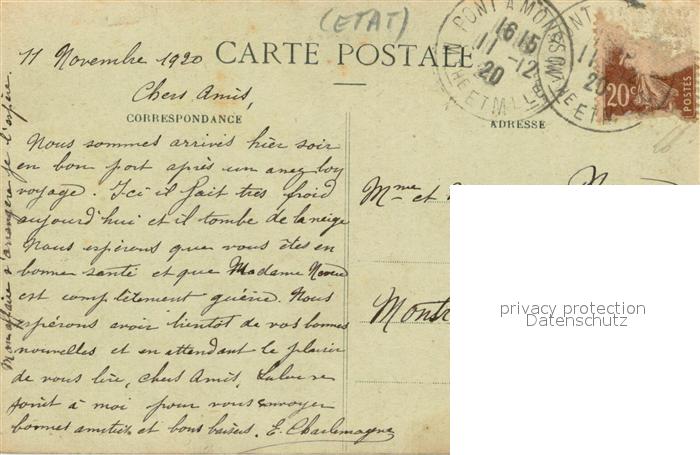 (ETAT)
11 Novembre 1920
CARTE POSTALE
PONT A MOUSSON
16 15
11 -12
20
MEURTHE ET M LLE
20c
POSTES
Chers Amis,
CORRESPONDANCE
ADRESSE
Nous sommes arrivés hier soir
en bon port après un assez bon
voyage. Ici il fait très froid
aujourd'hui et il tombe de la neige
Nous espérons que vous êtes en
bonne santé et que Madame
est complètement guérie. Nous
espérons avoir bientôt de vos bonnes
nouvelles et en attendant le plaisir
de vous lire, chers Amis,
joint à moi pour vous envoyer
bonnes amitiés et bons baisers. E. Charlemagne
Mon affaire s'arrangera je l'espère.
Mme et
Montr
privacy protection
Datenschutz